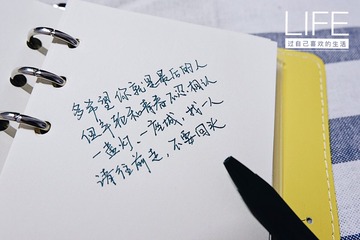 LIFE
过自己喜欢的生活
多希望你就是最后的人
但年轻和青春不忍相认
一盏灯、一座城、找一人
请往前走，不要回头